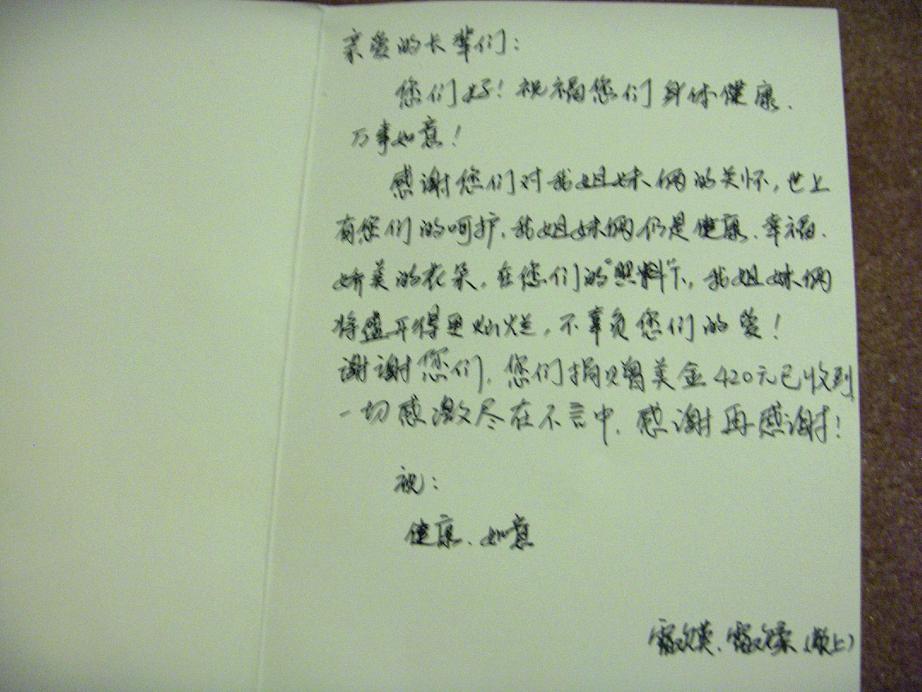 亲爱的长辈们：
您们好！祝福您们身体健康、
万事如意！
感谢您们对我姐妹俩的关怀，世上
有您们的呵护，我姐妹俩仍是健康、幸福、
娇美的花朵，在您们的"照料"下，我姐妹俩
将盛开得更灿烂，不辜负您们的爱！
谢谢您们，您们捐赠美金420元已收到
一切感激尽在不言中，感谢再感谢！
祝：
健康、如意
(敬上)